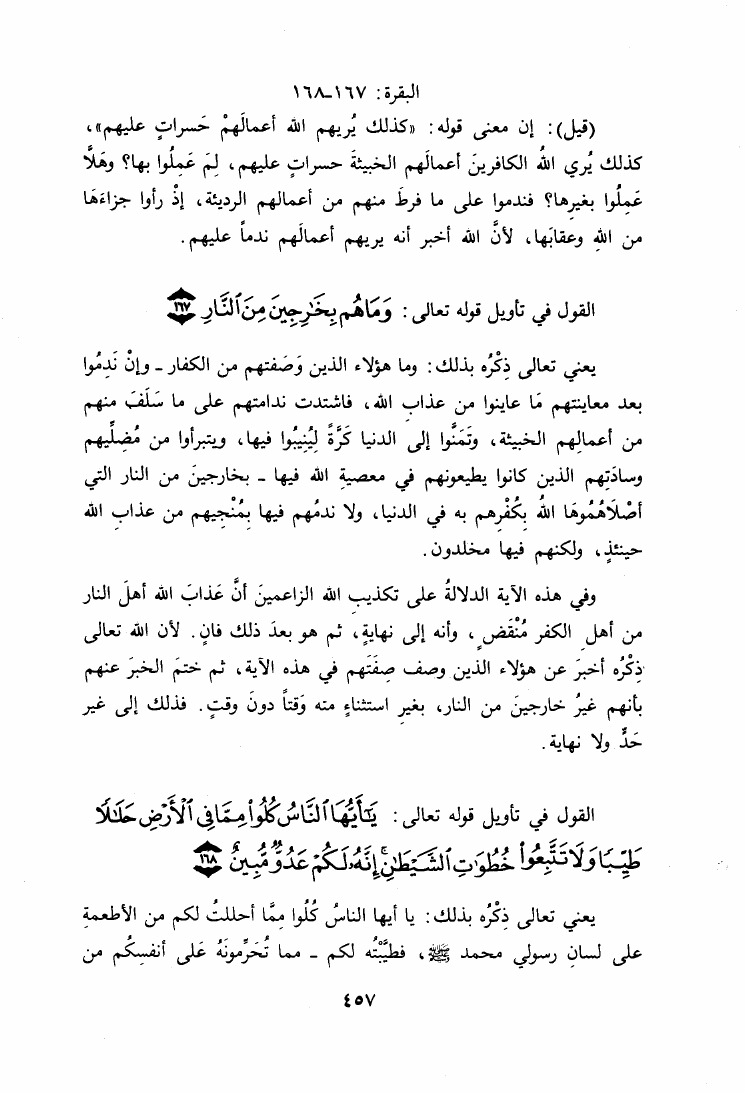 البقرة: ١٦٧-١٦٨
(قيل): إن معنى قوله: «كذلك يُريهم الله أعمالَهمْ حَسراتٍ عليهم»،
كذلك يُري اللهُ الكافرينَ أعمالَهم الخبيثةَ حسراتٍ عليهم، لِمَ عَمِلُوا بها؟ وهَلَّا
عَمِلُوا بغيرها؟ فندموا على ما فرطَ منهم من أعمالهم الرديئة، إذْ رأوا جزاءَهَا
من اللهِ وعقابَها، لأنَّ الله أخبر أنه يريهم أعمالَهم ندماً عليهم.
القول في تأويل قوله تعالى: وَمَا هُم بِخَٰرِجِينَ مِنَ ٱلنَّارِ ١٦٧
يعني تعالى ذِكْرُه بذلك: وما هؤلاء الذين وَصَفتهم من الكفار ـ وإنْ نَدِمُوا
بعد معاينتهم مَا عاينوا من عذاب الله، فاشتدت ندامتهم على ما سَلَفَ منهم
من أعمالِهم الخبيثة، وتَمَنَّوا إلى الدنيا كَرَّةً لِيُنِيبُوا فيها، ويتبرأوا من مُضِلِّيهم
وسادَتِهم الذين كانوا يطيعونهم في معصيةِ الله فيها ـ بخارجينَ من النار التي
أصْلَاهُمُوهَا اللهُ بِكُفْرِهم به في الدنيا، ولا ندمُهم فيها بِمُنْجيهم من عذابِ الله
حينئذٍ، ولكنهم فيها مخلدون.
وفي هذه الآية الدلالةُ على تكذيبِ الله الزاعمينَ أنَّ عَذابَ الله أهلَ النار
من أهلِ الكفر مُنْقَضٍ، وأنه إلى نهايةٍ، ثم هو بعدَ ذلك فانٍ. لأن الله تعالى
ذِكْرُه أخبرَ عن هؤلاء الذين وصف صِفَتَهم في هذه الآية، ثم ختمَ الخبرَ عنهم
بأنهم غيرُ خارجينَ من النار، بغير استثناءٍ منه وَقتاً دونَ وقتٍ. فذلك إلى غير
حَدٍّ ولا نهاية.
القول في تأويل قوله تعالى: يَٰٓأَيُّهَا ٱلنَّاسُ كُلُوا۟ مِمَّا فِى ٱلْأَرْضِ حَلَٰلًا
طَيِّبًا وَلَا تَتَّبِعُوا۟ خُطُوَٰتِ ٱلشَّيْطَٰنِ ۚ إِنَّهُۥ لَكُمْ عَدُوٌّ مُّبِينٌ ١٦٨
يعني تعالى ذِكْرُه بذلك: يا أيها الناسُ كُلُوا مِمَّا أحللتُ لكم من الأطعمةِ
على لسانِ رسولي محمد ﷺ، فطيَّبْتُه لكم ـ مما تُحَرِّمونَهُ عَلى أنفسِكُم من
٤٥٧